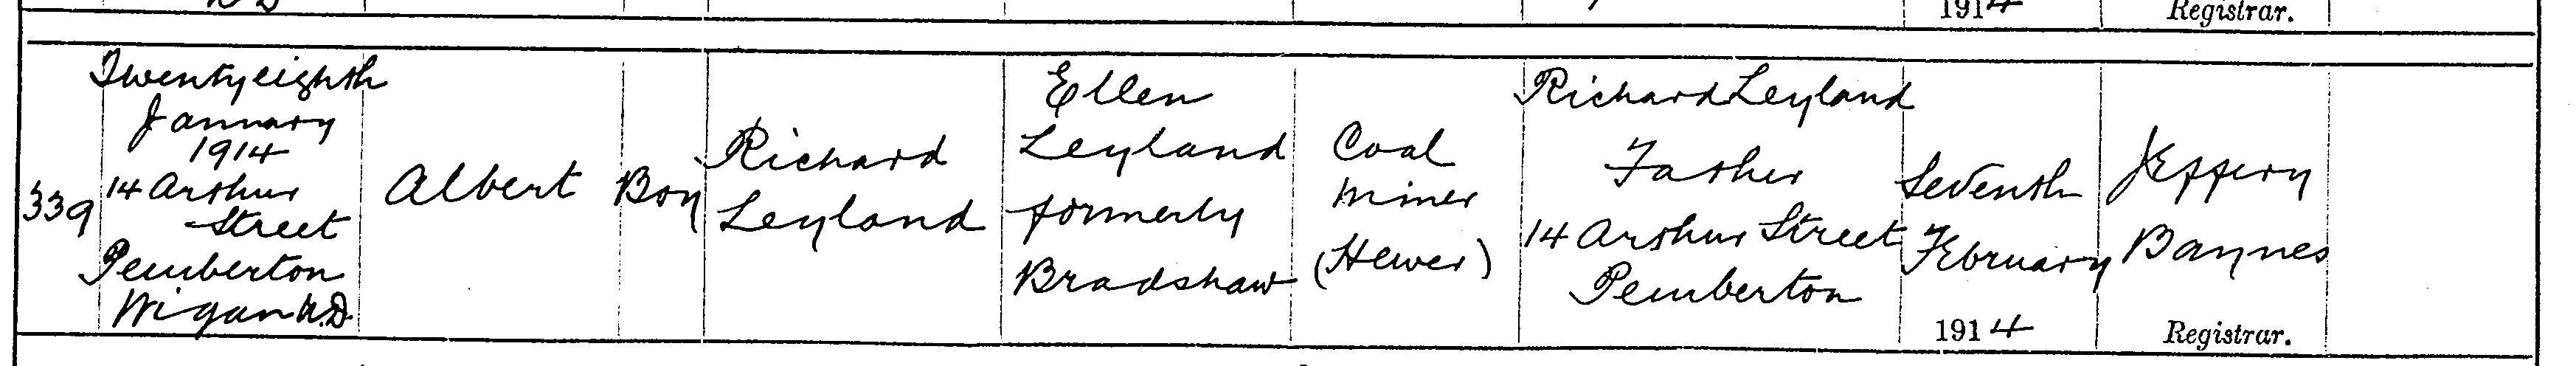 1914
Registrar.
339
Twenty eighth
January
1914
14 Arthur
Street
Pemberton
Wigan U.D.
Albert
Boy
Richard
Leyland
Ellen
Leyland
formerly
Bradshaw
Coal
Miner
(Hewer)
Richard Leyland
Father
14 Arthur Street
Pemberton
Seventh
February
1914
Jeffery
Baynes
Registrar.